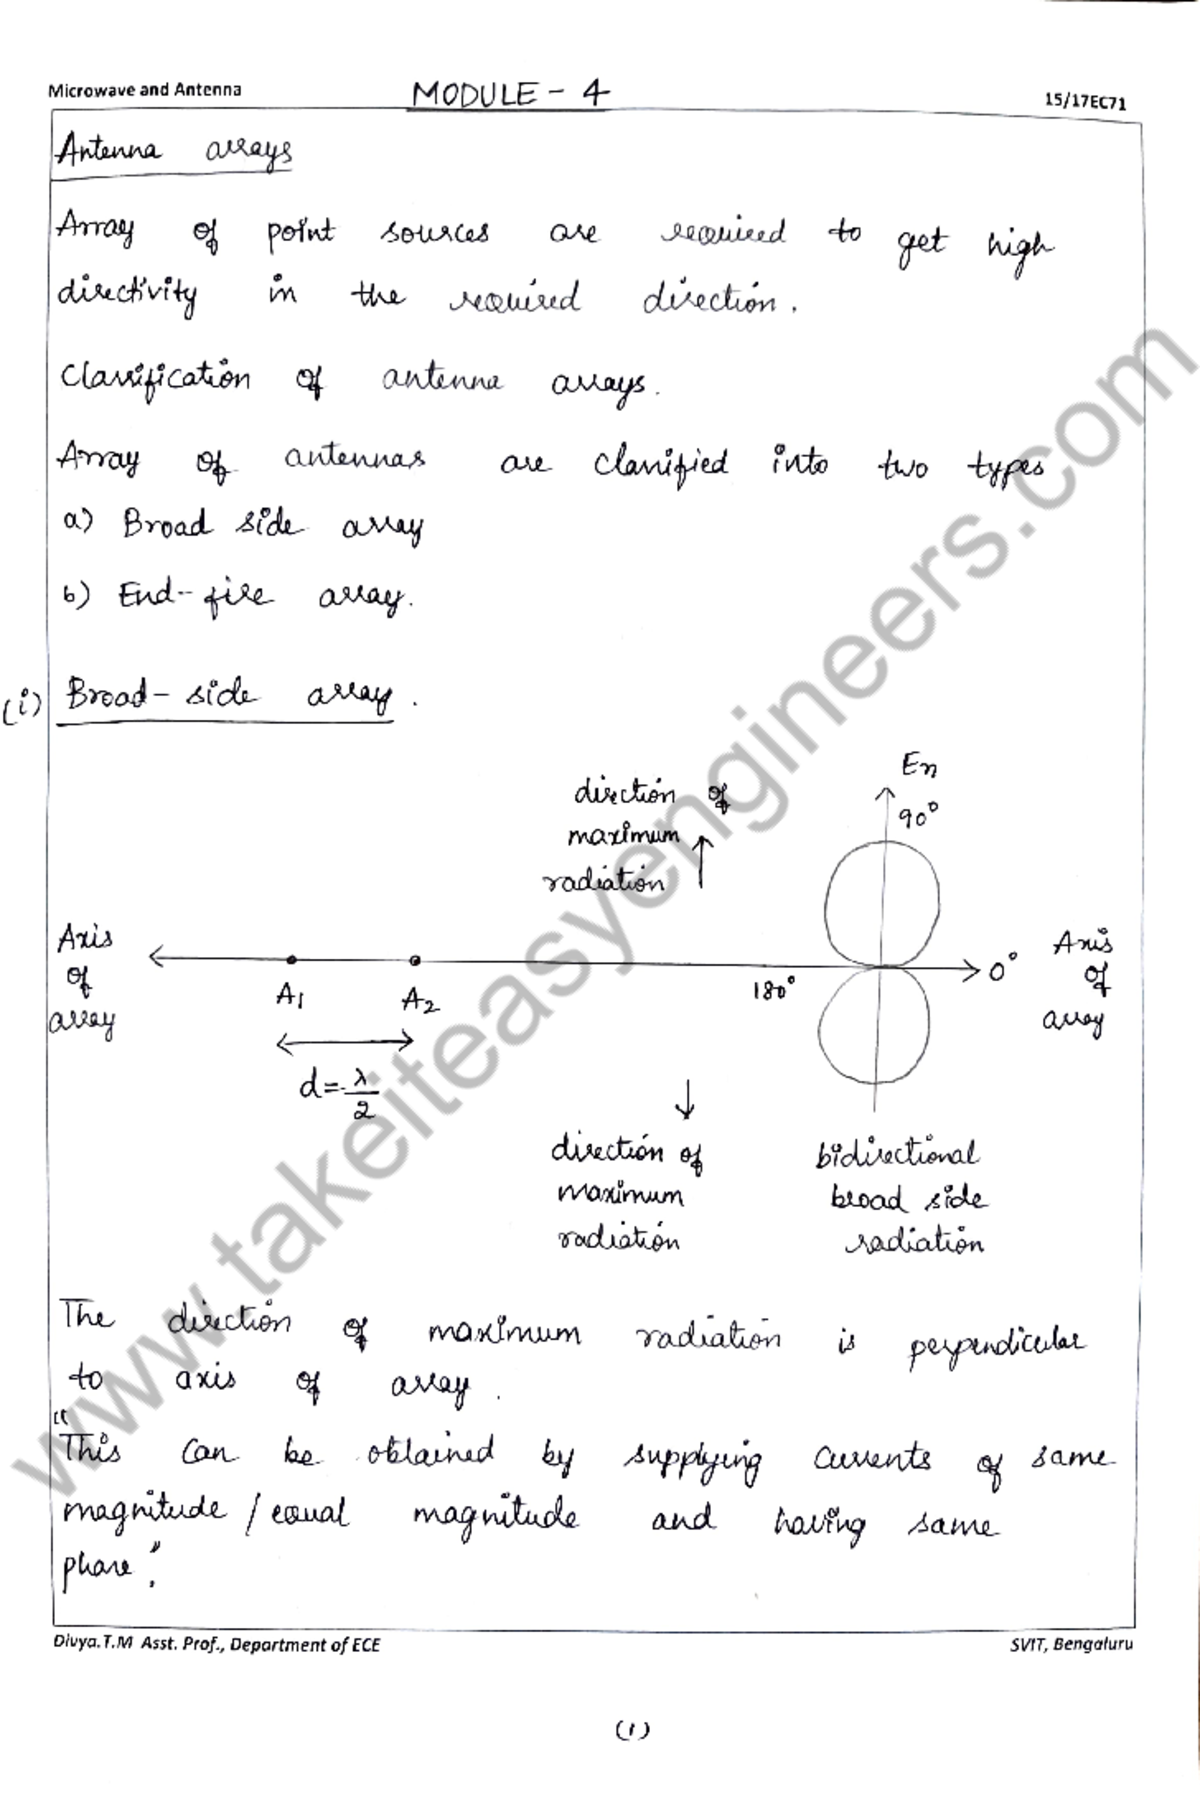 Microwave and Antenna
MODULE - 4
15/17EC71
Antenna arrays
Array of point sources are required to get high
directivity in the required direction.
Classification of antenna arrays.
Array of antennas are classified into two types
a) Broad side array
b) End-fire array.
(i) Broad-side array.
En
90°
direction of
maximum
radiation
Axis
of
array
A1
A2
180°
0°
Axis
of
array
d = λ/2
direction of
maximum
radiation
bidirectional
broad side
radiation
The direction of maximum radiation is perpendicular
to axis of array.
"This can be obtained by supplying currents of same
magnitude / equal magnitude and having same
phase".
Divya.T.M Asst. Prof., Department of ECE
SVIT, Bengaluru
(1)
www.takeiteasyengineers.com